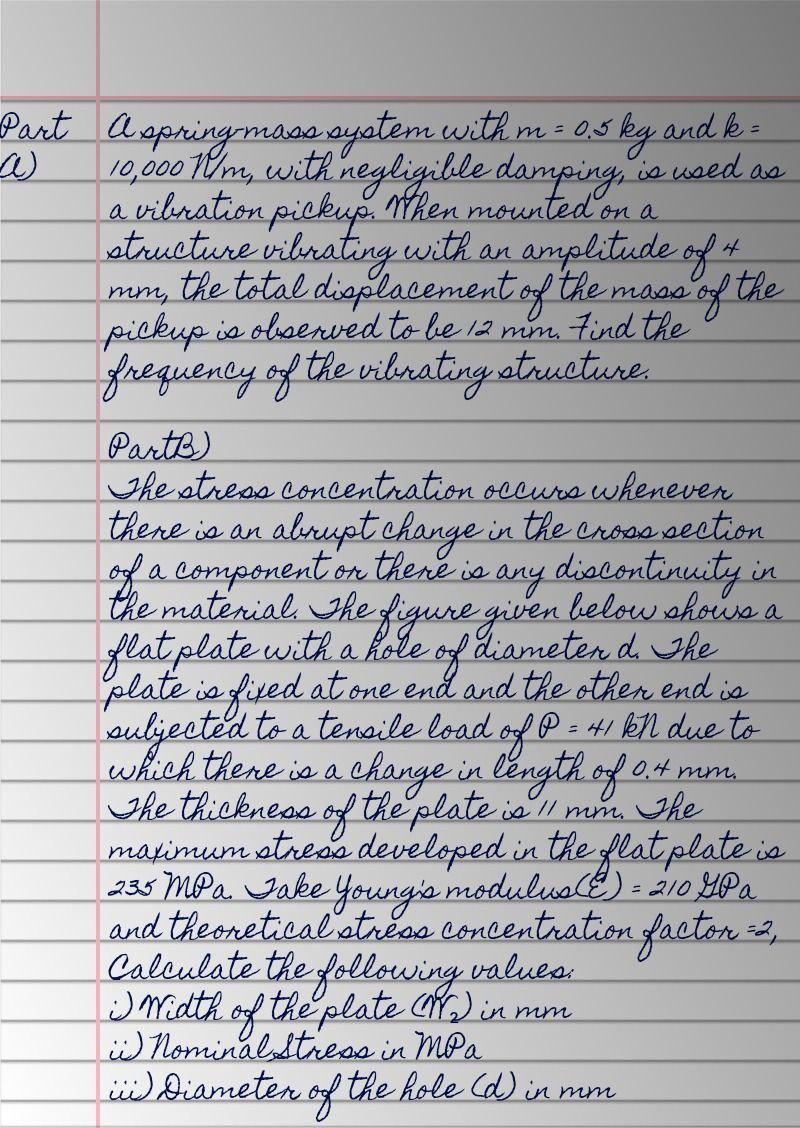 Part
A)
A spring-mass system with m = 0.5 kg and k =
10,000 N/m, with negligible damping, is used as
a vibration pickup. When mounted on a
structure vibrating with an amplitude of 4
mm, the total displacement of the mass of the
pickup is observed to be 12 mm. Find the
frequency of the vibrating structure.
PartB)
The stress concentration occurs whenever
there is an abrupt change in the cross section
of a component or there is any discontinuity in
the material. The figure given below shows a
flat plate with a hole of diameter d. The
plate is fixed at one end and the other end is
subjected to a tensile load of P = 41 kN due to
which there is a change in length of 0.4 mm.
The thickness of the plate is 11 mm. The
maximum stress developed in the flat plate is
235 MPa. Take Young's modulus(E) = 210 GPa
and theoretical stress concentration factor =2,
Calculate the following values:
i) Width of the plate (W₂) in mm
ii) Nominal Stress in MPa
iii) Diameter of the hole (d) in mm